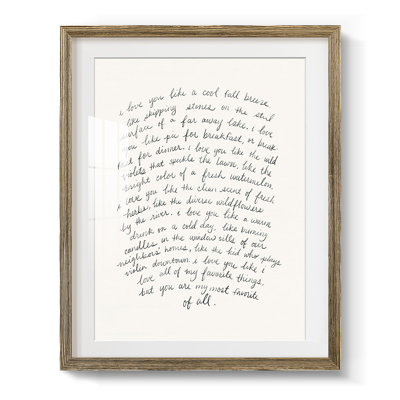 i love you like a cool fall breeze
like skipping stones on the still
surface of a far away lake. i love
you like pie for breakfast, or break-
fast for dinner. i love you like the wild
violets that speckle the lawn, like the
bright color of a fresh watermelon.
i love you like the clean scent of fresh
herbs, like the diverse wildflowers
by the river. i love you like a warm
drink on a cold day, like burning
candles in the windowsills of our
neighbors' homes, like the kid who plays
violin downtown. i love you like i
love all of my favorite things,
but you are my most favorite
of all.